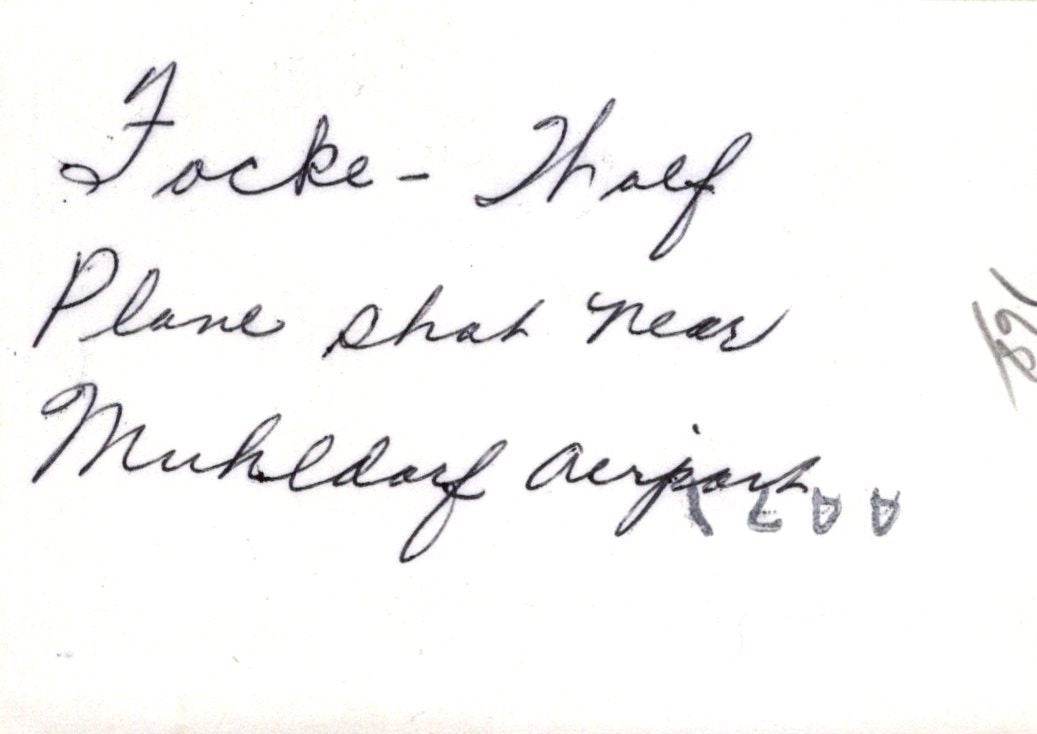 Focke- Wolf
Plane shot near
Muhldorf airport